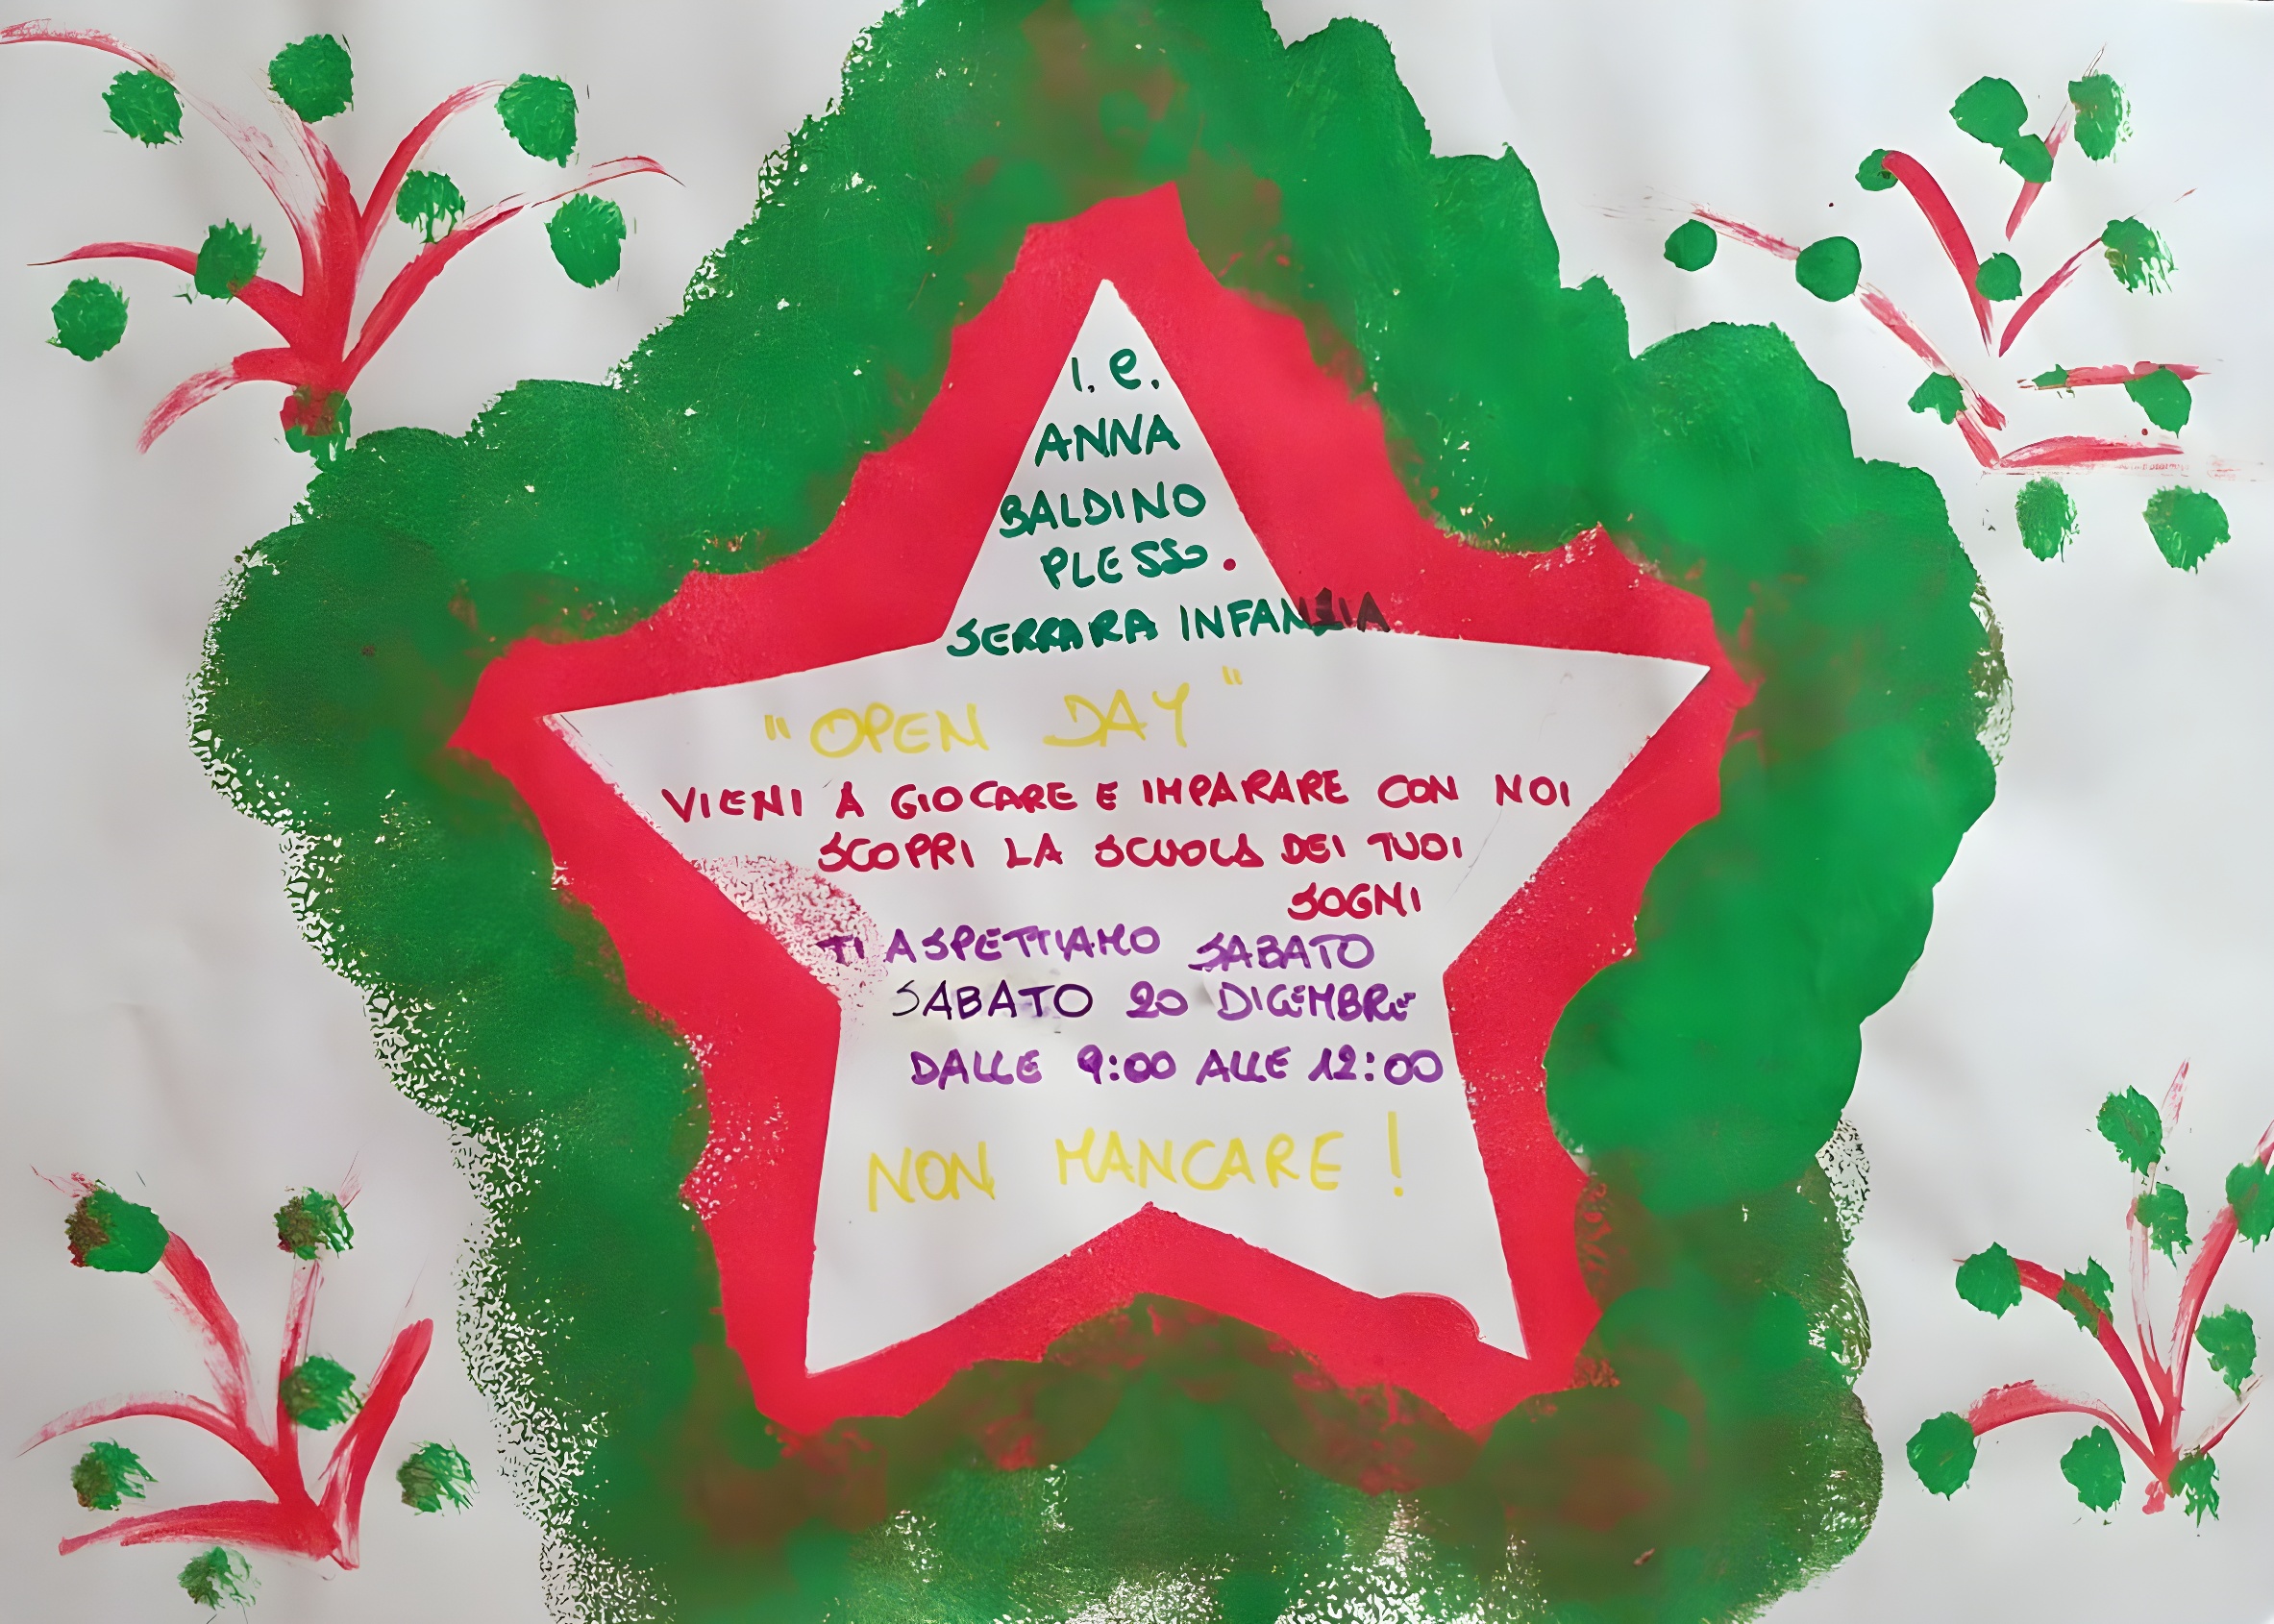 I. C.
ANNA
BALDINO
PLESSO.
SERRARA INFANZIA
"OPEN DAY"
VIENI A GIOCARE E IMPARARE CON NOI
SCOPRI LA SCUOLA DEI TUOI
SOGNI
TI ASPETTIAMO SABATO
SABATO 20 DICEMBRE
DALLE 9:00 ALLE 12:00
NON MANCARE!